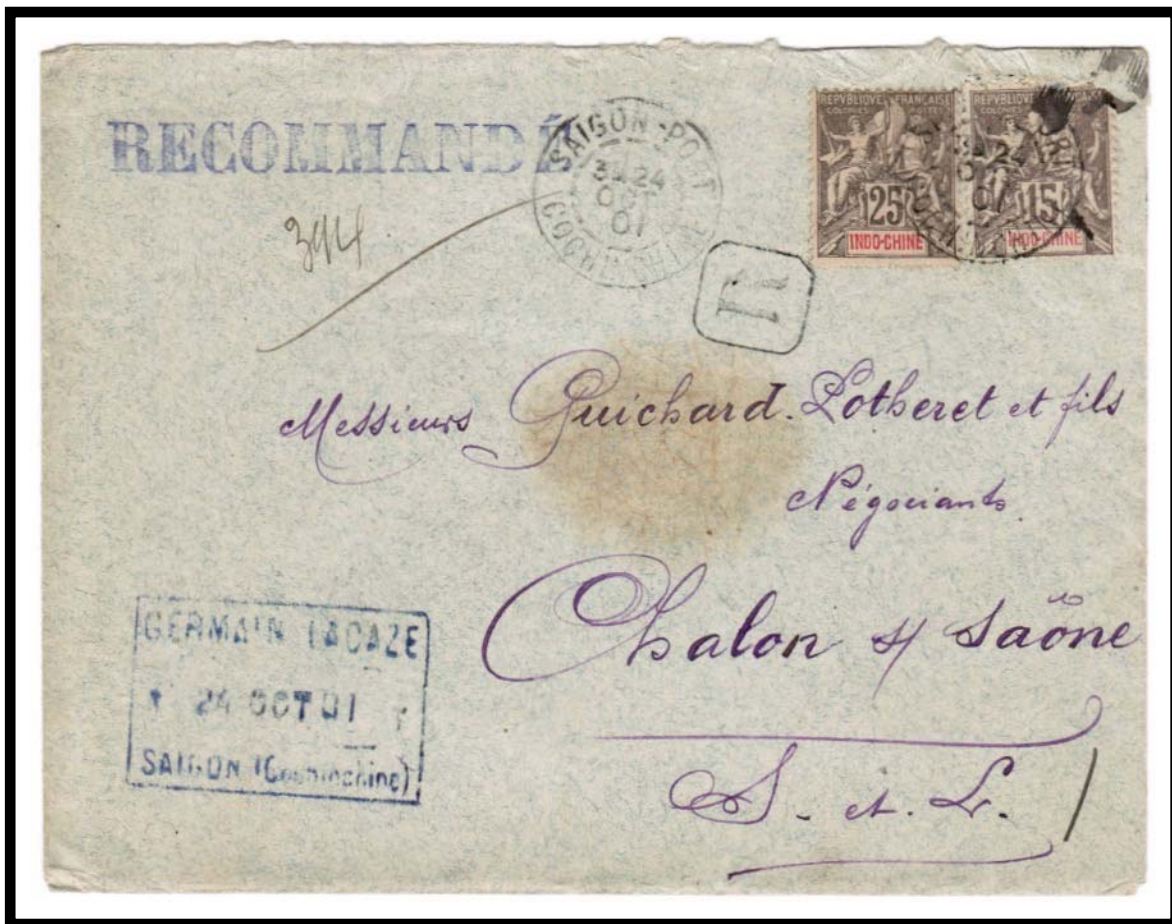 RECOMMANDÉ
394
SAIGON-PORT
3E 24
OCT
01
COCHINCHINE
REPVBLIQVE FRANÇAISE
COLONIES POSTES
25
INDO-CHINE
REPVBLIQVE FRANÇAISE
15
INDO-CHINE
24
01
R
Messieurs Guichard-Potheret et fils
Négociants
Chalon s/ Saône
S. et. L.
GERMAIN LACAZE
24 OCT 01
SAIGON (Cochinchine)